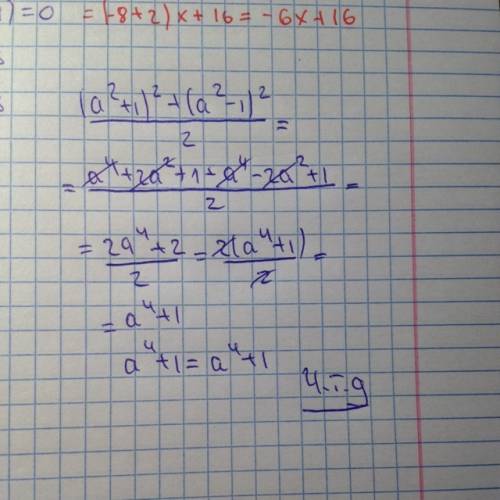 ) = 0 = (-8+2)x+16 = -6x+16
(a²+1)²+(a²-1)² / 2 =
= a⁴+2a²+1+a⁴-2a²+1 / 2 =
= 2a⁴+2 / 2 = 2(a⁴+1) / 2 =
= a⁴+1
a⁴+1 = a⁴+1
ч.т.д